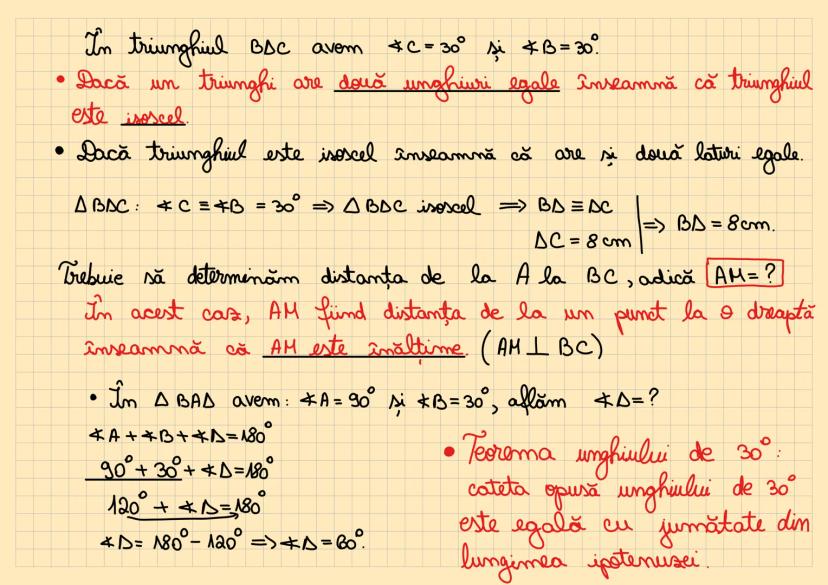 În triunghiul BDC avem ∢C = 30° și ∢B = 30°.
• Dacă un triunghi are două unghiuri egale înseamnă că triunghiul
este isoscel.
• Dacă triunghiul este isoscel înseamnă că are și două laturi egale.
∆ BDC: ∢C ≡ ∢B = 30° ⇒ ∆ BDC isoscel ⇒ BD ≡ DC
DC = 8 cm | ⇒ BD = 8 cm.
Trebuie să determinăm distanța de la A la BC, adică AM = ?
În acest caz, AM fiind distanța de la un punct la o dreaptă
înseamnă că AM este înălțime. (AM ⊥ BC)
• În ∆ BAD avem: ∢A = 90° și ∢B = 30°, aflăm ∢D = ?
∢A + ∢B + ∢D = 180°
90° + 30° + ∢D = 180°
120° + ∢D = 180°
∢D = 180° - 120° ⇒ ∢D = 60°.
• Teorema unghiului de 30°:
cateta opusă unghiului de 30°
este egală cu jumătate din
lungimea ipotenuzei.